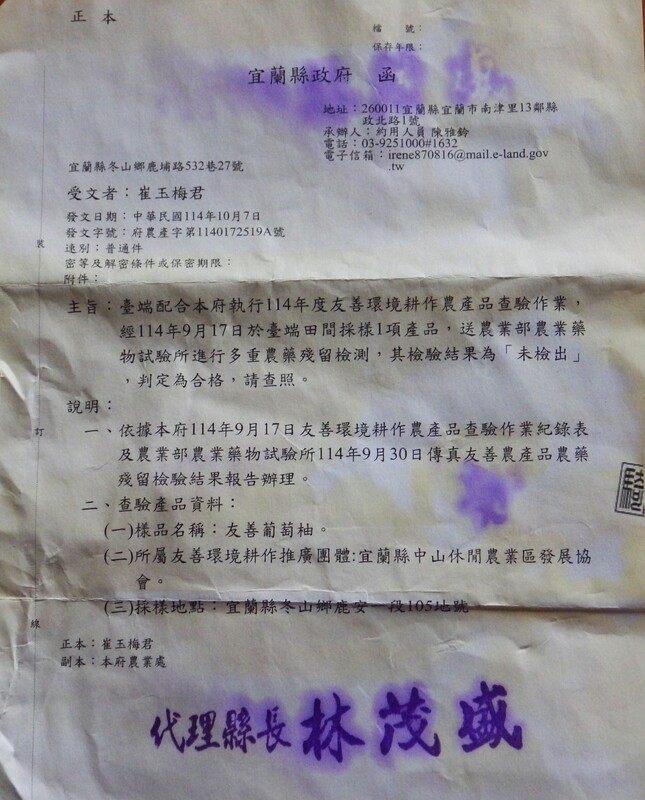 正本
檔　號：
保存年限：
宜蘭縣政府　函
地址：260011宜蘭縣宜蘭市南津里13鄰縣
政北路1號
承辦人：約用人員 陳雅鈴
電話：03-9251000#1632
電子信箱：irene870816@mail.e-land.gov
.tw
宜蘭縣冬山鄉鹿埔路532巷27號
受文者：崔玉梅君
發文日期：中華民國114年10月7日
發文字號：府農產字第1140172519A號
速別：普通件
密等及解密條件或保密期限：
附件：
裝
主旨：臺端配合本府執行114年度友善環境耕作農產品查驗作業，
經114年9月17日於臺端田間採樣1項產品，送農業部農業藥
物試驗所進行多重農藥殘留檢測，其檢驗結果為「未檢出」
，判定為合格，請查照。
說明：
訂
一、依據本府114年9月17日友善環境耕作農產品查驗作業紀錄表
及農業部農業藥物試驗所114年9月30日傳真友善農產品農藥
殘留檢驗結果報告辦理。
二、查驗產品資料：
(一)樣品名稱：友善葡萄柚。
(二)所屬友善環境耕作推廣團體:宜蘭縣中山休閒農業區發展協
會。
(三)採樣地點：宜蘭縣冬山鄉鹿安一段105地號
線
正本：崔玉梅君
副本：本府農業處
代理縣長 林茂盛